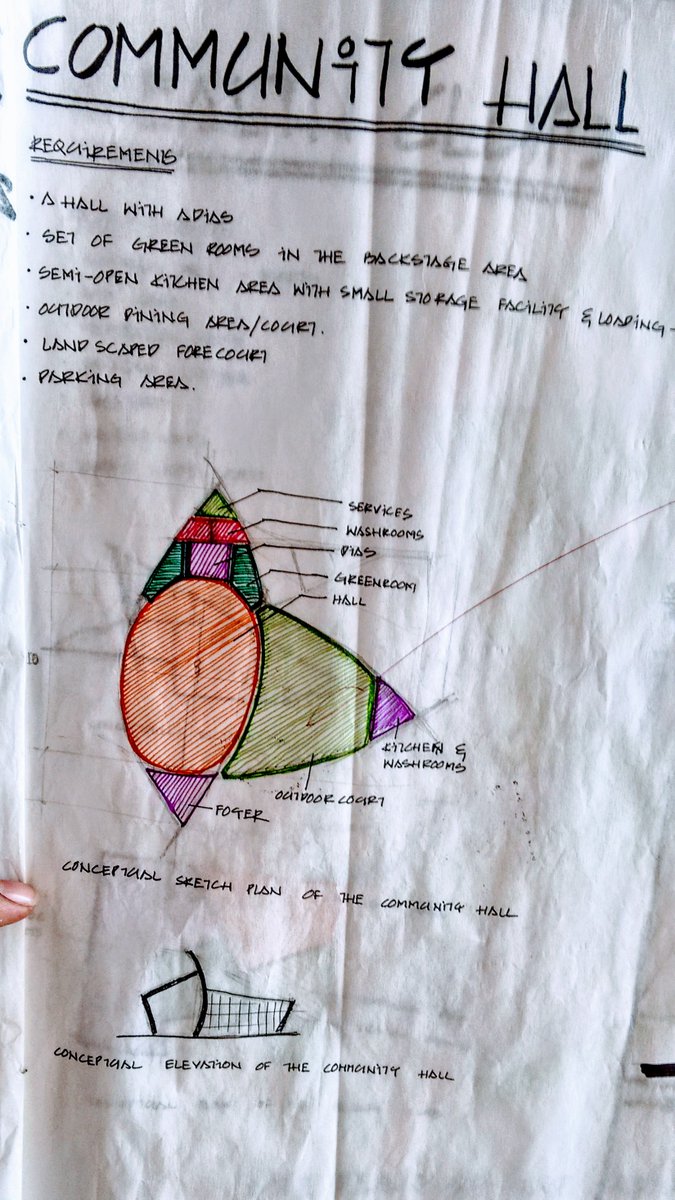 COMMUNITY HALL
REQUIREMENTS
• A HALL WITH A DIAS
• SET OF GREEN ROOMS IN THE BACKSTAGE AREA
• SEMI-OPEN KITCHEN AREA WITH SMALL STORAGE FACILITY & LOADING-
• OUTDOOR DINING AREA/COURT.
• LANDSCAPED FORECOURT
• PARKING AREA.
SERVICES
WASHROOMS
DIAS
GREENROOM
HALL
KITCHEN &
WASHROOMS
OUTDOOR COURT
FOYER
CONCEPTUAL SKETCH PLAN OF THE COMMUNITY HALL
CONCEPTUAL ELEVATION OF THE COMMUNITY HALL